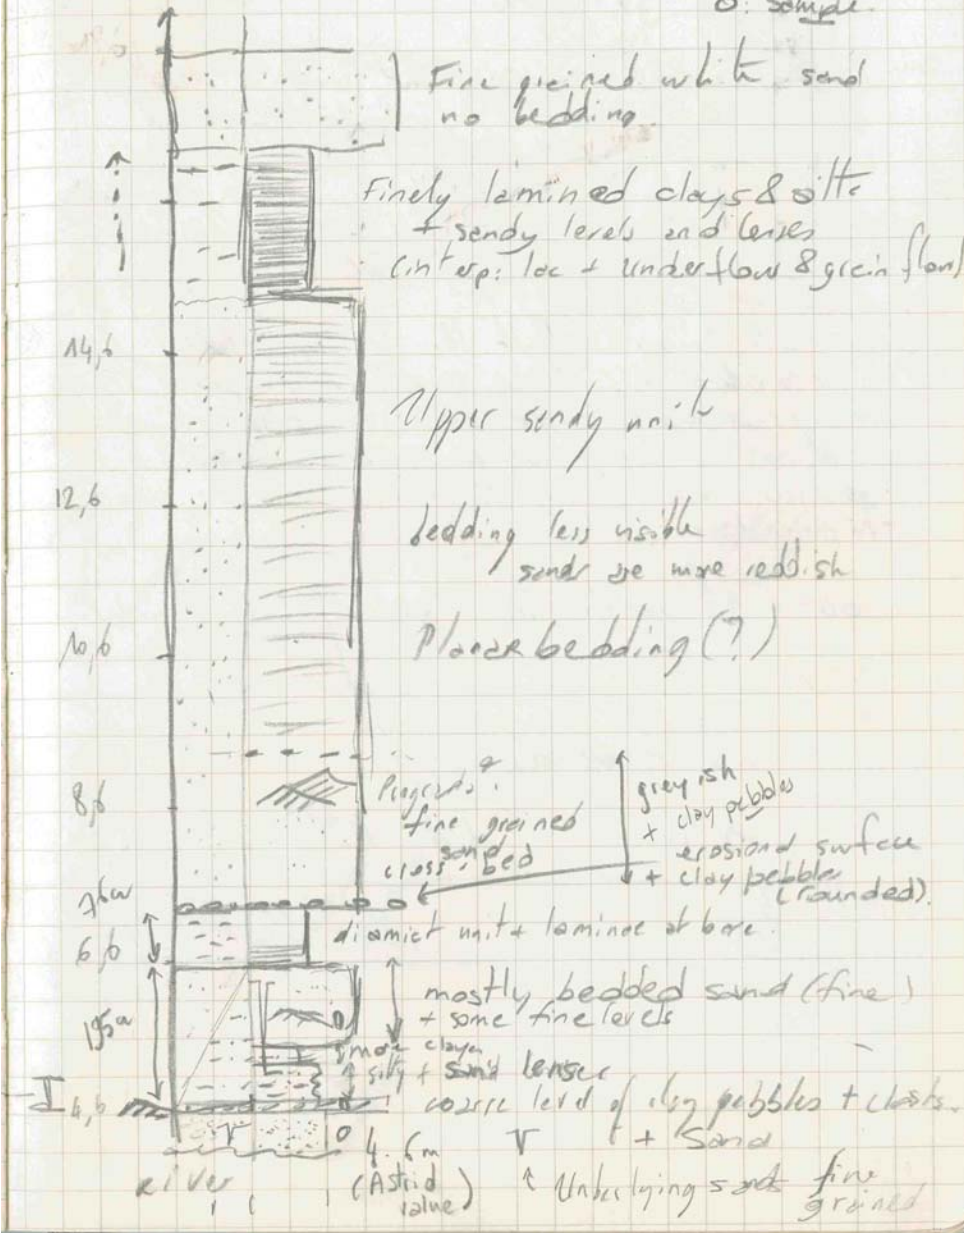 O: sample
Fine grained white sand
no bedding
Finely lamined clays & silts
+ sandy levels and lenses
(interp: lac + underflow & grain flow)
14,6
Upper sandy unit
12,6
bedding less visible
sands are more reddish
10,6
Planar bedding (?)
8,6
fine grained
sand
cross bed
greyish
+ clay pebbles
erosional surface
+ clay pebbles
(rounded).
6,6
diamict unit + laminae at base.
mostly bedded sand (fine)
+ some fine levels
more clayey
silty + sand lenses
4,6
coarse level of clay pebbles + clasts.
+ Sand
4.6m
(Astrid
value)
River
↑ Underlying sands fine
grained